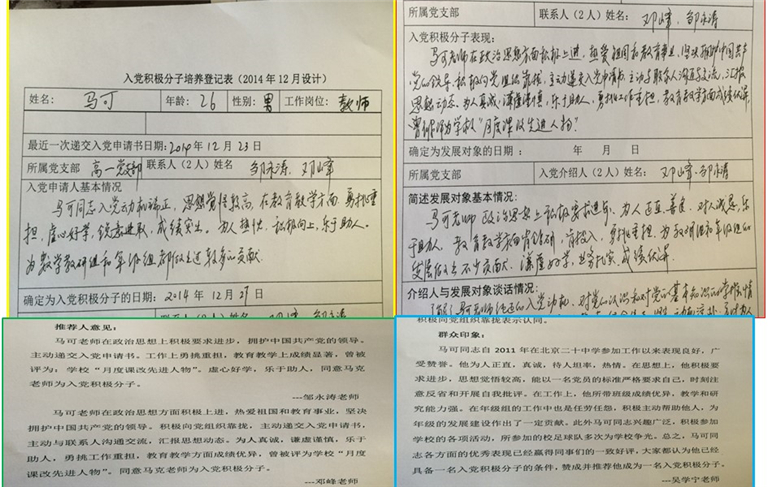 入党积极分子培养登记表（2014年12月设计）
姓名： 马可 年龄：26 性别：男 工作岗位：教师
最近一次递交入党申请书日期：2014年12月23日
所属党支部 高一党支部 联系人（2人）姓名 邹永涛、邓峰
入党申请人基本情况
马可同志入党动机端正，思想觉悟较高，在教育教学方面勇挑重
担，虚心好学，锐意进取，成绩突出。为人热忱，积极向上，乐于助人。
为数学教研组和年级组都做出过较多的贡献。
确定为入党积极分子的日期： 2014年12月29日
所属党支部 联系人（2人）姓名 邓峰、邹永涛
入党积极分子表现：
马可老师在政治思想方面积极上进，热爱祖国和教育事业，坚决拥护中国共产
党的领导。积极向党组织靠拢，主动递交入党申请书，主动与联系人沟通交流，汇报
思想动态。为人真诚，谦虚谨慎，乐于助人，勇挑工作重担，教育教学方面成绩优异，
曾被评为学校“月度课改先进人物”。
确定为发展对象的日期： 年 月 日
入党介绍人（2人）姓名 邓峰、邹永涛
简述发展对象基本情况：
马可老师政治思想上积极要求进步。为人正直善良，对人诚恳，乐
于助人。教育教学方面肯钻研，肯投入，勇挑重担，为教研组和年级组的
发展做出不少贡献。谦虚好学，成绩优异。
介绍人与发展对象谈话情况：
马可老师 的入党动机，对党的认识和对党的基本知识的学习情
推荐人意见：
马可老师在政治思想上积极要求进步，拥护中国共产党的领导。
主动递交入党申请书。工作上勇挑重担，教育教学上成绩显著，曾被
评为：学校“月度课改先进人物”。虚心好学，乐于助人，同意马克
老师为入党积极分子。
---邹永涛老师
马可老师在政治思想方面积极上进，热爱祖国和教育事业，坚决
拥护中国共产党的领导。积极向党组织靠拢，主动递交入党申请书，
主动与联系人沟通交流，汇报思想动态。为人真诚，谦虚谨慎，乐于
助人，勇挑工作重担，教育教学方面成绩优异，曾被评为学校“月度
课改先进人物”。同意马克老师为入党积极分子。
---邓峰老师
积极向党组织靠拢表示认同。
群众印象：
马可同志自 2011 年在北京二十中学参加工作以来表现良好，广
受赞誉。他为人正直，真诚，待人坦率，热情。在思想上，他积极要
求进步，思想觉悟较高，能以一名党员的标准严格要求自己，时刻注
意反省和开展自我批评。在工作上，他所带班级成绩优异，教学和研
究能力强。在年级组的工作中也是任劳任怨，积极主动帮助他人，为
年级的发展建设作出了一定贡献。此外马可同志兴趣广泛，积极参加
学校的各项活动，所参加的校足球队多次为学校争光。总之，马可同
志各方面的优秀表现已经赢得同事们的一致好评，大家都认为他已经
具备一名入党积极分子的条件，赞成并推荐他成为一名入党积极分子。
---吴学宁老师